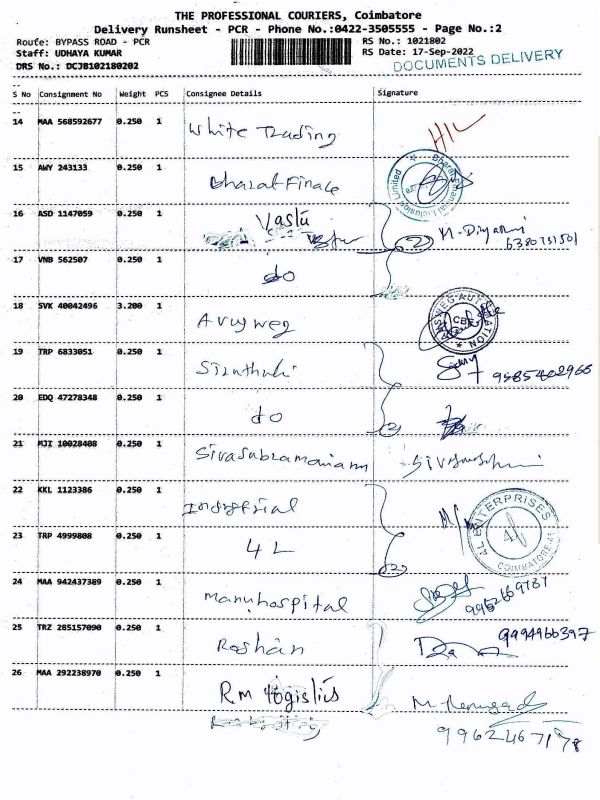 THE PROFESSIONAL COURIERS, Coimbatore
Delivery Runsheet - PCR - Phone No.:0422-3505555 - Page No.:2
Route: BYPASS ROAD - PCR RS No.: 1021802
Staff: UDHAYA KUMAR RS Date: 17-Sep-2022
DRS No.: DCJB102180202 DOCUMENTS DELIVERY
S No Consignment No Weight PCS Consignee Details Signature
14 MAA 568592677 0.250 1 White Trading
15 AWY 243133 0.250 1 Bharat Finace
16 ASD 1147059 0.250 1 Vastu
6380731501
17 VNB 562507 0.250 1 do
18 SVK 40042496 3.200 1
19 TRP 6833051 0.250 1
9585402966
20 EDQ 47278348 0.250 1 do
21 MJI 10028408 0.250 1 Sivasubramaniam
22 KKL 1123386 0.250 1 Industrial
4L ENTERPRISES
4L
COIMBATORE
23 TRP 4999808 0.250 1 4 L
24 MAA 942437389 0.250 1 Manuhospital
25 TRZ 285157090 0.250 1 Roshan
9994966397
26 MAA 292238970 0.250 1 RM logistics